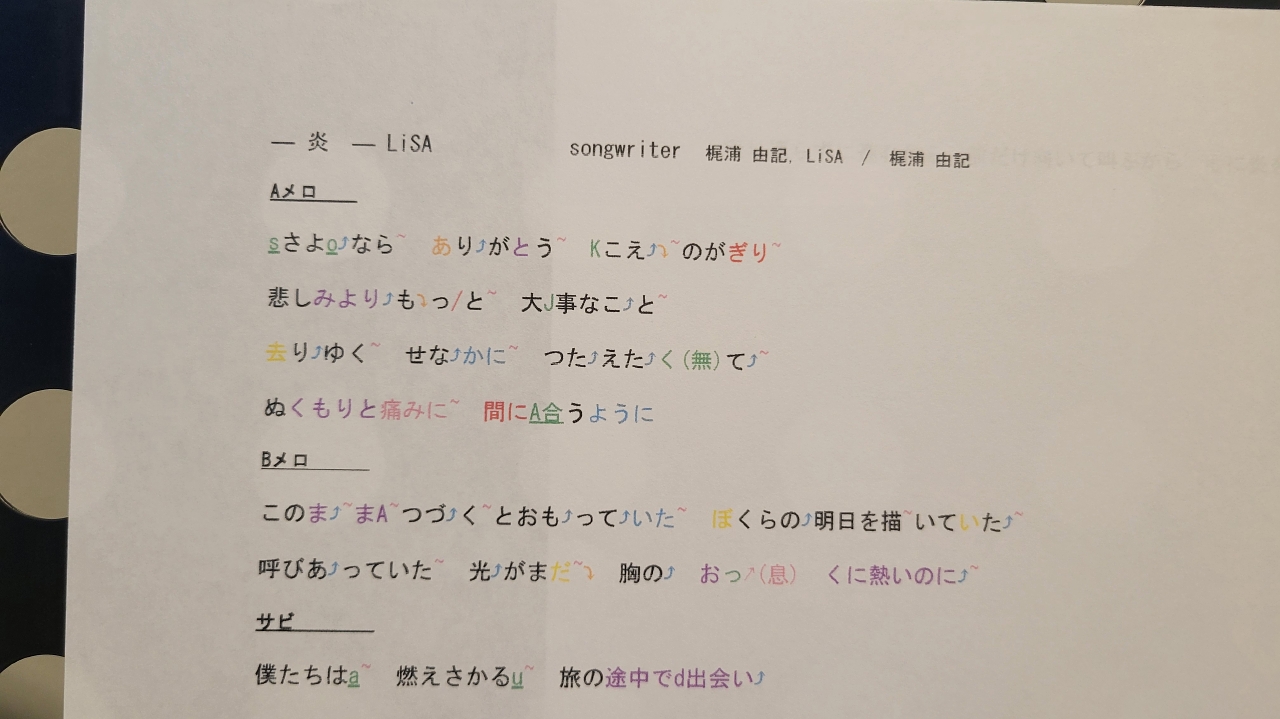 — 炎 — LiSA songwriter 梶浦 由記, LiSA / 梶浦 由記
Aメロ
sさよo⤴なら~ あり⤴がとう~ Kこえ⤴⤵~のがぎり~
悲しみより⤴も⤵っ/と~ 大J事なこ⤴と~
去り⤴ゆく~ せな⤴かに~ つた⤴えた⤴く(無)て⤴~
ぬくもりと痛みに~ 間にA合うように
Bメロ
このま⤴~まA~つづ⤴く~とおも⤴って⤴いた~ ぼくらの⤴明日を描~いていた⤴~
呼びあ⤴っていた~ 光⤴がまだ~⤵ 胸の⤴ おっ↗(息) くに熱いのに⤴~
サビ
僕たちはa~ 燃えさかるu~ 旅の途中でd出会い⤴